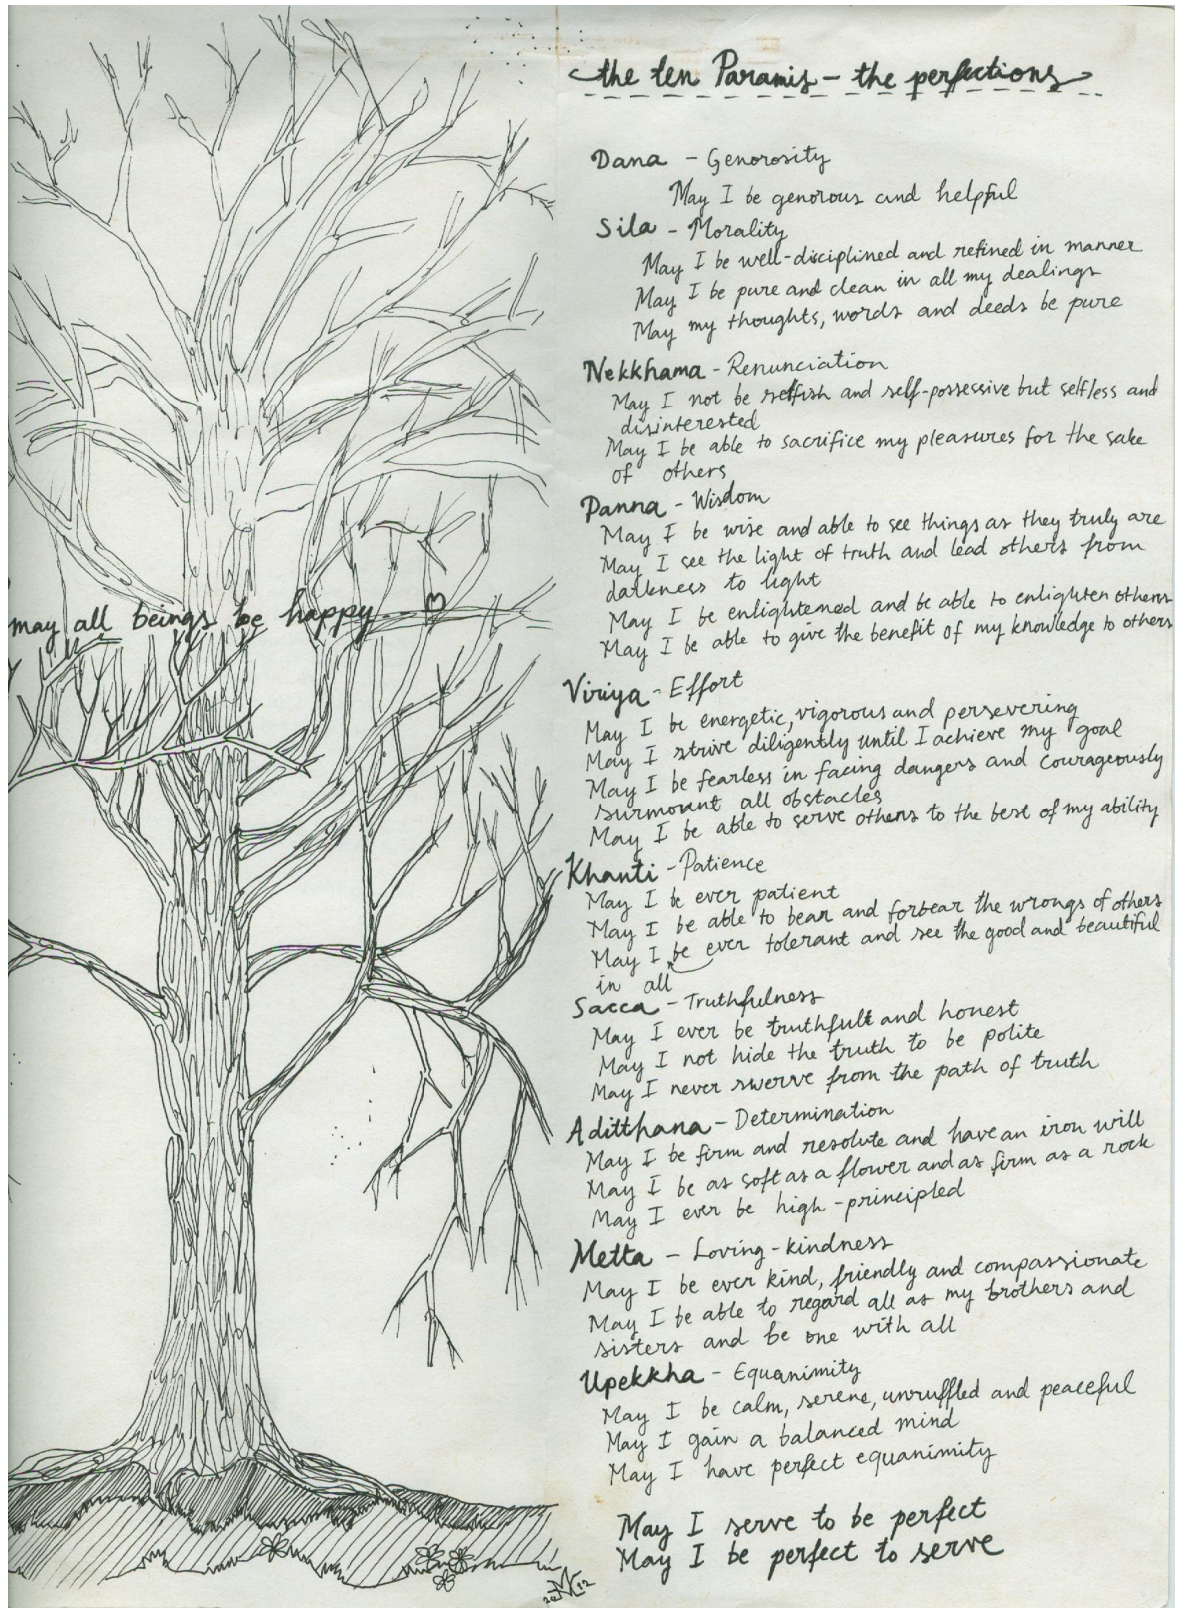 the ten Paramis - the perfections
Dana - Generosity
May I be genorous and helpful
Sila - Morality
May I be well-disciplined and refined in manner
May I be pure and clean in all my dealings
May my thoughts, words and deeds be pure
Nekkhama - Renunciation
May I not be selfish and self-possessive but selfless and
disinterested
May I be able to sacrifice my pleasures for the sake
of others
Panna - Wisdom
May I be wise and able to see things as they truly are
May I see the light of truth and lead others from
darkness to light
May I be enlightened and be able to enlighten others
May I be able to give the benefit of my knowledge to others
may all beings be happy
Viriya - Effort
May I be energetic, vigorous and persevering
May I strive diligently until I achieve my goal
May I be fearless in facing dangers and courageously
surmount all obstacles
May I be able to serve others to the best of my ability
Khanti - Patience
May I be ever patient
May I be able to bear and forbear the wrongs of others
May I be ever tolerant and see the good and beautiful
in all
Sacca - Truthfulness
May I ever be truthful and honest
May I not hide the truth to be polite
May I never swerve from the path of truth
Aditthana - Determination
May I be firm and resolute and have an iron will
May I be as soft as a flower and as firm as a rock
May I ever be high-principled
Metta - Loving-kindness
May I be ever kind, friendly and compassionate
May I be able to regard all as my brothers and
sisters and be one with all
Upekkha - Equanimity
May I be calm, serene, unruffled and peaceful
May I gain a balanced mind
May I have perfect equanimity
May I serve to be perfect
May I be perfect to serve